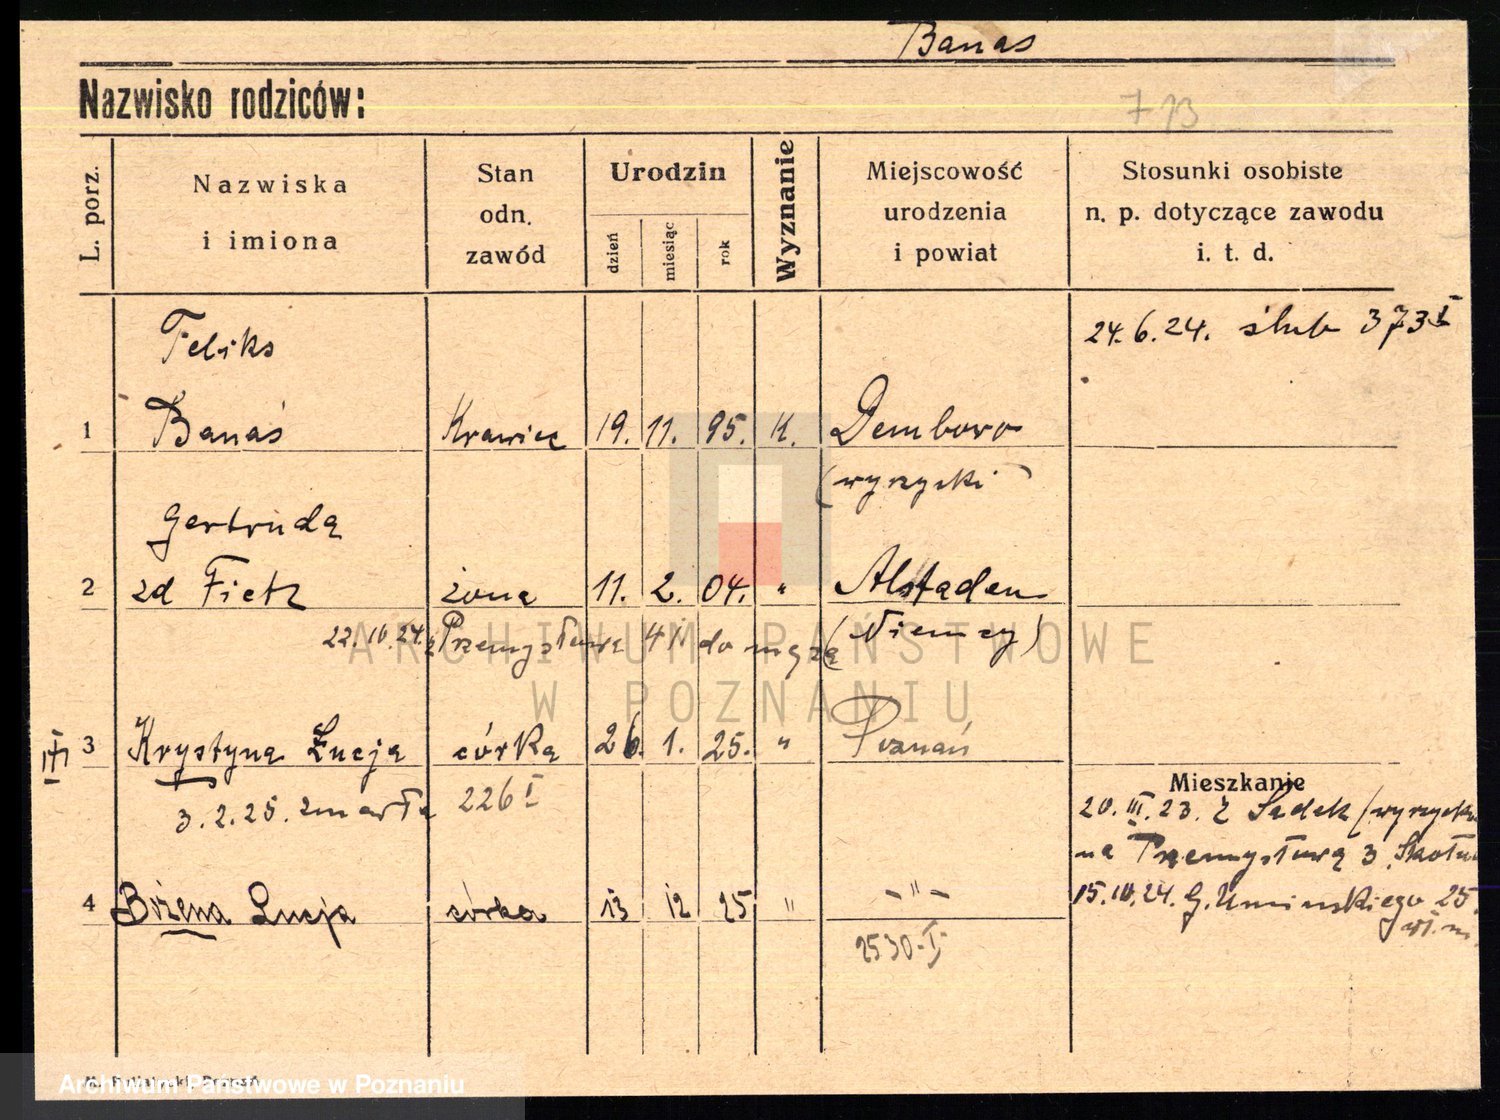 Banas
Nazwisko rodziców:
7 B
L. porz.
Nazwiska
i imiona
Stan
odn.
zawód
Urodzin
dzień
miesiąc
rok
Wyznanie
Miejscowość
urodzenia
i powiat
Stosunki osobiste
n. p. dotyczące zawodu
i. t. d.
Feliks
24.6.24. ślub 373 I
1 Banaś Krawiec 19. 11. 95. K. Demboro
(wyrzyski)
Gertruda
2 zd Fietz żona 11. 2. 04. " Alstaden
22.10.24. z Przemysłowa 41 do męża
(Niemcy)
ARCHIWUM PAŃSTWOWE
W POZNANIU
III 3 Krystyna Łucja córka 26. 1. 25. " Poznań
3.2.25. zmarła 226 I
Mieszkanie
20.III.23. z Sadek (wyrzyski
na Przemysłową 3
4 Bożena Lucja córka 13 12 25 " - " -
15.10.24. G. Umińskiego 25.
2530-I
Archiwum Państwowe w Poznaniu